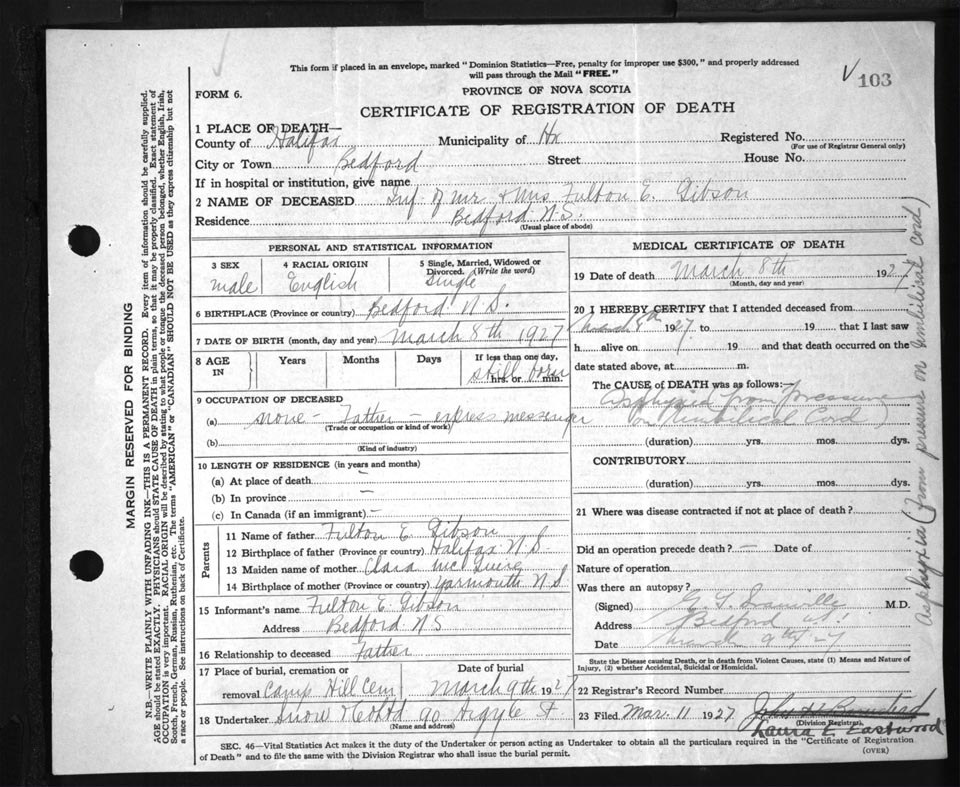 This form if placed in an envelope, marked "Dominion Statistics—Free, penalty for improper use $300," and properly addressed
will pass through the Mail "FREE."
√ 103
FORM 6.
PROVINCE OF NOVA SCOTIA
CERTIFICATE OF REGISTRATION OF DEATH
1 PLACE OF DEATH—
County of Halifax Municipality of Hx Registered No.
(For use of Registrar General only)
City or Town Bedford Street House No.
If in hospital or institution, give name
2 NAME OF DECEASED Inf. of Mr. & Mrs Fulton E. Gibson
Residence Bedford N.S.
(Usual place of abode)
PERSONAL AND STATISTICAL INFORMATION
3 SEX 4 RACIAL ORIGIN 5 Single, Married, Widowed or
Divorced. (Write the word)
male English Single
6 BIRTHPLACE (Province or country) Bedford N.S.
7 DATE OF BIRTH (month, day and year) March 8th 1927
8 AGE IN Years Months Days If less than one day,
still born
hrs. or min.
9 OCCUPATION OF DECEASED
(a) none – Father – express messenger
(Trade or occupation or kind of work)
(b)
(Kind of industry)
10 LENGTH OF RESIDENCE (in years and months)
(a) At place of death –
(b) In province –
(c) In Canada (if an immigrant) –
Parents
11 Name of father Fulton E. Gibson
12 Birthplace of father (Province or country) Halifax N.S.
13 Maiden name of mother Clara McGuire
14 Birthplace of mother (Province or country) Yarmouth N.S
15 Informant's name Fulton E. Gibson
Address Bedford NS
16 Relationship to deceased Father
17 Place of burial, cremation or Date of burial
removal Camp Hill Cem March 9th 1927
18 Undertaker Snow & Co Ltd 90 Argyle St.
(Name and address)
MEDICAL CERTIFICATE OF DEATH
19 Date of death March 8th 1927
(Month, day and year)
20 I HEREBY CERTIFY that I attended deceased from
March 8th 1927 to 19 that I last saw
h alive on 19 and that death occurred on the
date stated above, at m.
The CAUSE of DEATH was as follows:—
Asphyxia from pressure
on Umbilical Cord
(duration) yrs. mos. dys.
CONTRIBUTORY
(duration) yrs. mos. dys.
21 Where was disease contracted if not at place of death?
Did an operation precede death? – Date of
Nature of operation
Was there an autopsy?
(Signed) M.D.
Address Bedford
Date March 9th 27
State the Disease causing Death, or in death from Violent Causes, state (1) Means and Nature of
Injury, (2) whether Accidental, Suicidal or Homicidal.
22 Registrar's Record Number
23 Filed Mar. 11 1927
(Division Registrar)
Laura E. Eastwood
SEC. 46—Vital Statistics Act makes it the duty of the Undertaker or person acting as Undertaker to obtain all the particulars required in the "Certificate of Registration
of Death" and to file the same with the Division Registrar who shall issue the burial permit.
(OVER)
Asphyxia (from pressure on Umbilical cord)
MARGIN RESERVED FOR BINDING
N.B.—WRITE PLAINLY WITH UNFADING INK—THIS IS A PERMANENT RECORD. Every item of information should be carefully supplied.
AGE should be stated EXACTLY. PHYSICIANS should STATE CAUSE OF DEATH in plain terms, so that it may be properly classified. Exact statement of
OCCUPATION is very important. RACIAL ORIGIN will be described by stating to what people or tongue the deceased person belonged, whether English, Irish,
Scotch, French, German, Russian, Ruthenian, etc. The terms "AMERICAN" or "CANADIAN" SHOULD NOT BE USED as they express citizenship but not
a race or people. See instructions on back of Certificate.